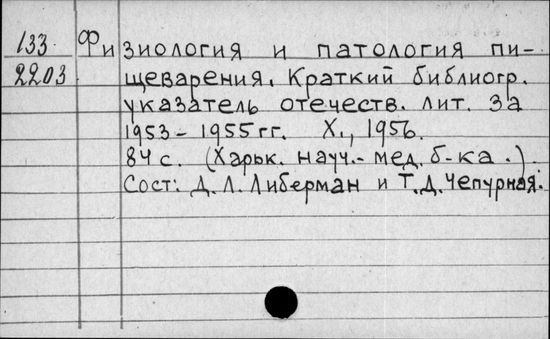 133 Физиология и патология пи-
2203 щеварения. Краткий библиогр.
указатель отечеств. лит. за
1953-1955 гг. Х., 1956.
84 с. (Харьк. науч.-мед. б-ка.)
Сост: Д. Л. Либерман и Т. Д. Чепурная.